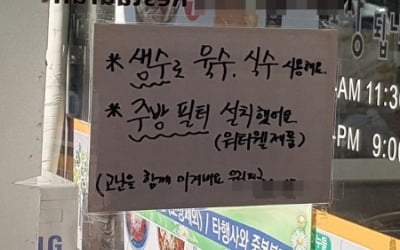 ※ 생수로 육수, 식수 사용해요.
※ 주방 필터 설치했어요.
(워타웰제품)
(고난을 함께 이겨내요
AM 11:3
PM 9:0
/ 타행사와 중복